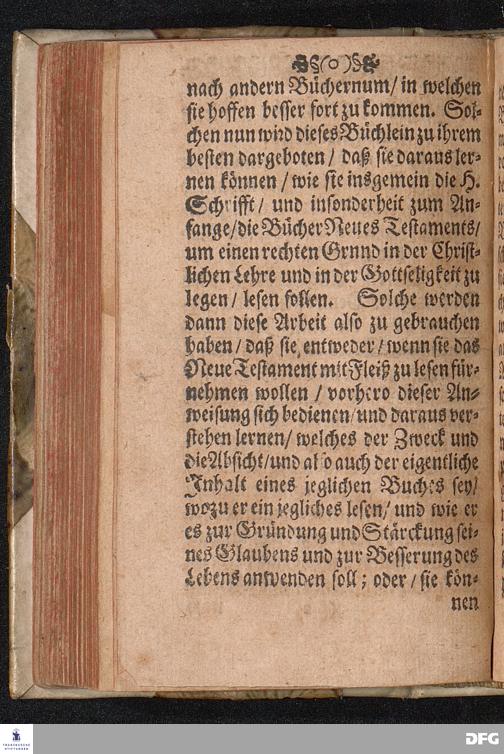 §(o)§
nach andern Büchern um/ in welchen
sie hoffen besser fort zu kommen. Sol-
chen nun wird dieses Büchlein zu ihrem
besten dargeboten / daß sie daraus ler-
nen können / wie sie insgemein die H.
Schrifft / und insonderheit zum An-
fange/ die Bücher Neues Testaments/
um einen rechten Grnnd in der Christ-
lichen Lehre und in der Gottseligkeit zu
legen / lesen sollen. Solche werden
dann diese Arbeit also zu gebrauchen
haben / daß sie entweder / wenn sie das
Neue Testament mit Fleiß zu lesen für-
nehmen wollen / vorhero dieser An-
weisung sich bedienen/ und daraus ver-
stehen lernen/ welches der Zweck und
die Absicht/ und also auch der eigentliche
Inhalt eines jeglichen Buches sey/
wozu er ein jegliches lesen/ und wie er
es zur Gründung und Stärckung sei-
nes Glaubens und zur Besserung des
Lebens anwenden soll ; oder / sie kön-
nen
FRANCKESCHE
STIFTUNGEN
DFG